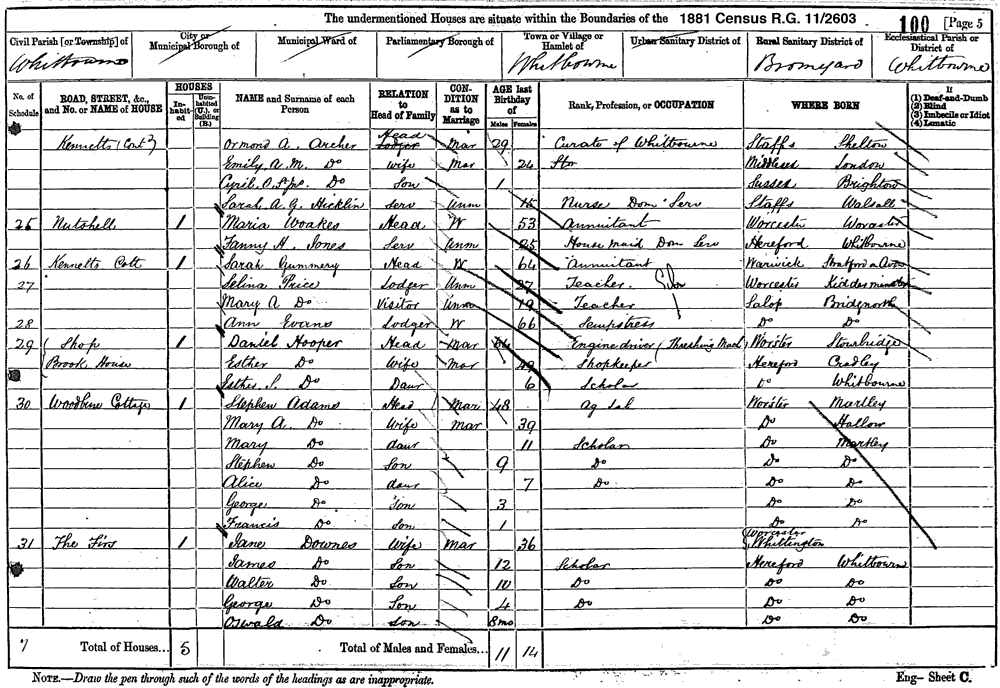 The undermentioned Houses are situate within the Boundaries of the 1881 Census R.G. 11/2603 100 [Page 5
Civil Parish [or Township] of City or Municipal Borough of Municipal Ward of Parliamentary Borough of Town or Village or Hamlet of Urban Sanitary District of Rural Sanitary District of Ecclesiastical Parish or District of
Whitbourne Whitbourne Bromyard Whitbourne
No. of Schedule ROAD, STREET, &c., and No. or NAME of HOUSE HOUSES Inhabited Uninhabited (U.), or Building (B.) NAME and Surname of each Person RELATION to Head of Family CONDITION as to Marriage AGE last Birthday of Males Females Rank, Profession, or OCCUPATION WHERE BORN If (1) Deaf-and-Dumb (2) Blind (3) Imbecile or Idiot (4) Lunatic
Kennetts (Contd) Ormond A. Archer Head Lodger Mar 29 Curate of Whitbourne Staffs Shelton
Emily A. M. Do Wife Mar 24 Middlesex London
Cyril Do Son 1 Sussex Brighton
Sarah A. G. Hicklin Serv Unm 15 Nurse Dom Serv Staffs Walsall
25 Nutshell 1 Maria Woakes Head W 53 Annuitant Worcester Worcester
Fanny H. Jones Serv Unm 25 House maid Dom Serv Hereford Whitbourne
26 Kennetts Cott 1 Sarah Gummery Head W 64 Annuitant Warwick Stratford on Avon
27 Selina Price Lodger Unm 27 Teacher Worcester Kidderminster
Mary A Do Visitor Unm 19 Teacher Salop Bridgnorth
28 Ann Evans Lodger W 66 Sempstress Do Do
29 Shop 1 Daniel Hooper Head Mar 64 Engine driver (Threshing Mach) Worster Stourbridge
Brook House Esther Do Wife Mar 49 Shopkeeper Hereford Cradley
Esther S. Do Daur 6 Scholar Do Whitbourne
30 Woodbine Cottage 1 Stephen Adams Head Mar 48 Ag Lab Worster Martley
Mary A. Do Wife Mar 39 Do Hallow
Mary Do daur 11 Scholar Do Martley
Stephen Do Son 9 Do Do Do
Alice Do daur 7 Do Do Do
George Do Son 3 Do Do
Francis Do Son 1 Do Do
31 The Firs 1 Jane Downes Wife Mar 36 Worcester Whittington
James Do Son 12 Scholar Hereford Whitbourne
Walter Do Son 10 Do Do Do
George Do Son 4 Do Do Do
Oswald Do Son 8mo Do Do
7 Total of Houses... 5 Total of Males and Females... 11 14
NOTE.—Draw the pen through such of the words of the headings as are inappropriate. Eng- Sheet C.